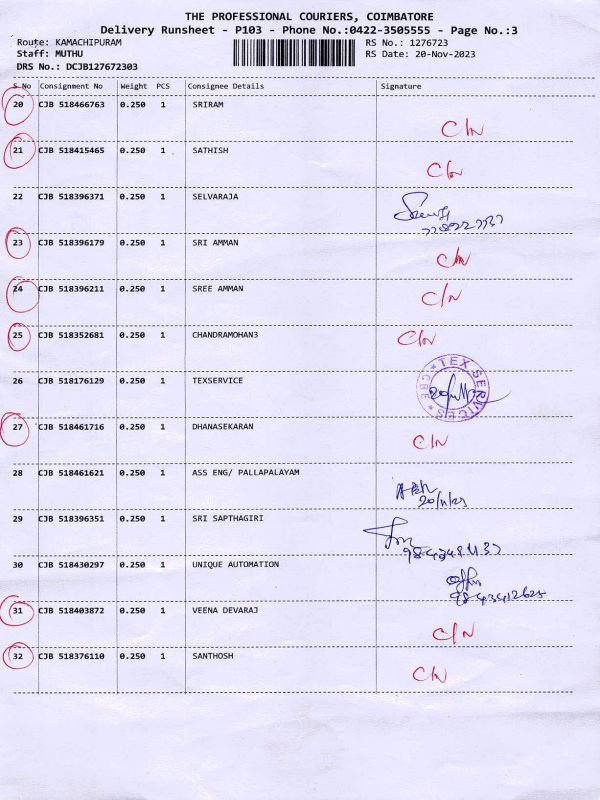 THE PROFESSIONAL COURIERS, COIMBATORE
Delivery Runsheet - P103 - Phone No.:0422-3505555 - Page No.:3
Route: KAMACHIPURAM RS No.: 1276723
Staff: MUTHU RS Date: 20-Nov-2023
DRS No.: DCJB127672303
S No Consignment No Weight PCS Consignee Details Signature
20 CJB 518466763 0.250 1 SRIRAM
C/N
21 CJB 518415465 0.250 1 SATHISH
C/N
22 CJB 518396371 0.250 1 SELVARAJA
23 CJB 518396179 0.250 1 SRI AMMAN
C/N
24 CJB 518396211 0.250 1 SREE AMMAN
C/N
25 CJB 518352681 0.250 1 CHANDRAMOHAN3
C/N
26 CJB 518176129 0.250 1 TEXSERVICE
TEX SERVICES CBE
27 CJB 518461716 0.250 1 DHANASEKARAN
C/N
28 CJB 518461621 0.250 1 ASS ENG/ PALLAPALAYAM
20/11/23
29 CJB 518396351 0.250 1 SRI SAPTHAGIRI
30 CJB 518430297 0.250 1 UNIQUE AUTOMATION
31 CJB 518403872 0.250 1 VEENA DEVARAJ
C/N
32 CJB 518376110 0.250 1 SANTHOSH
C/N